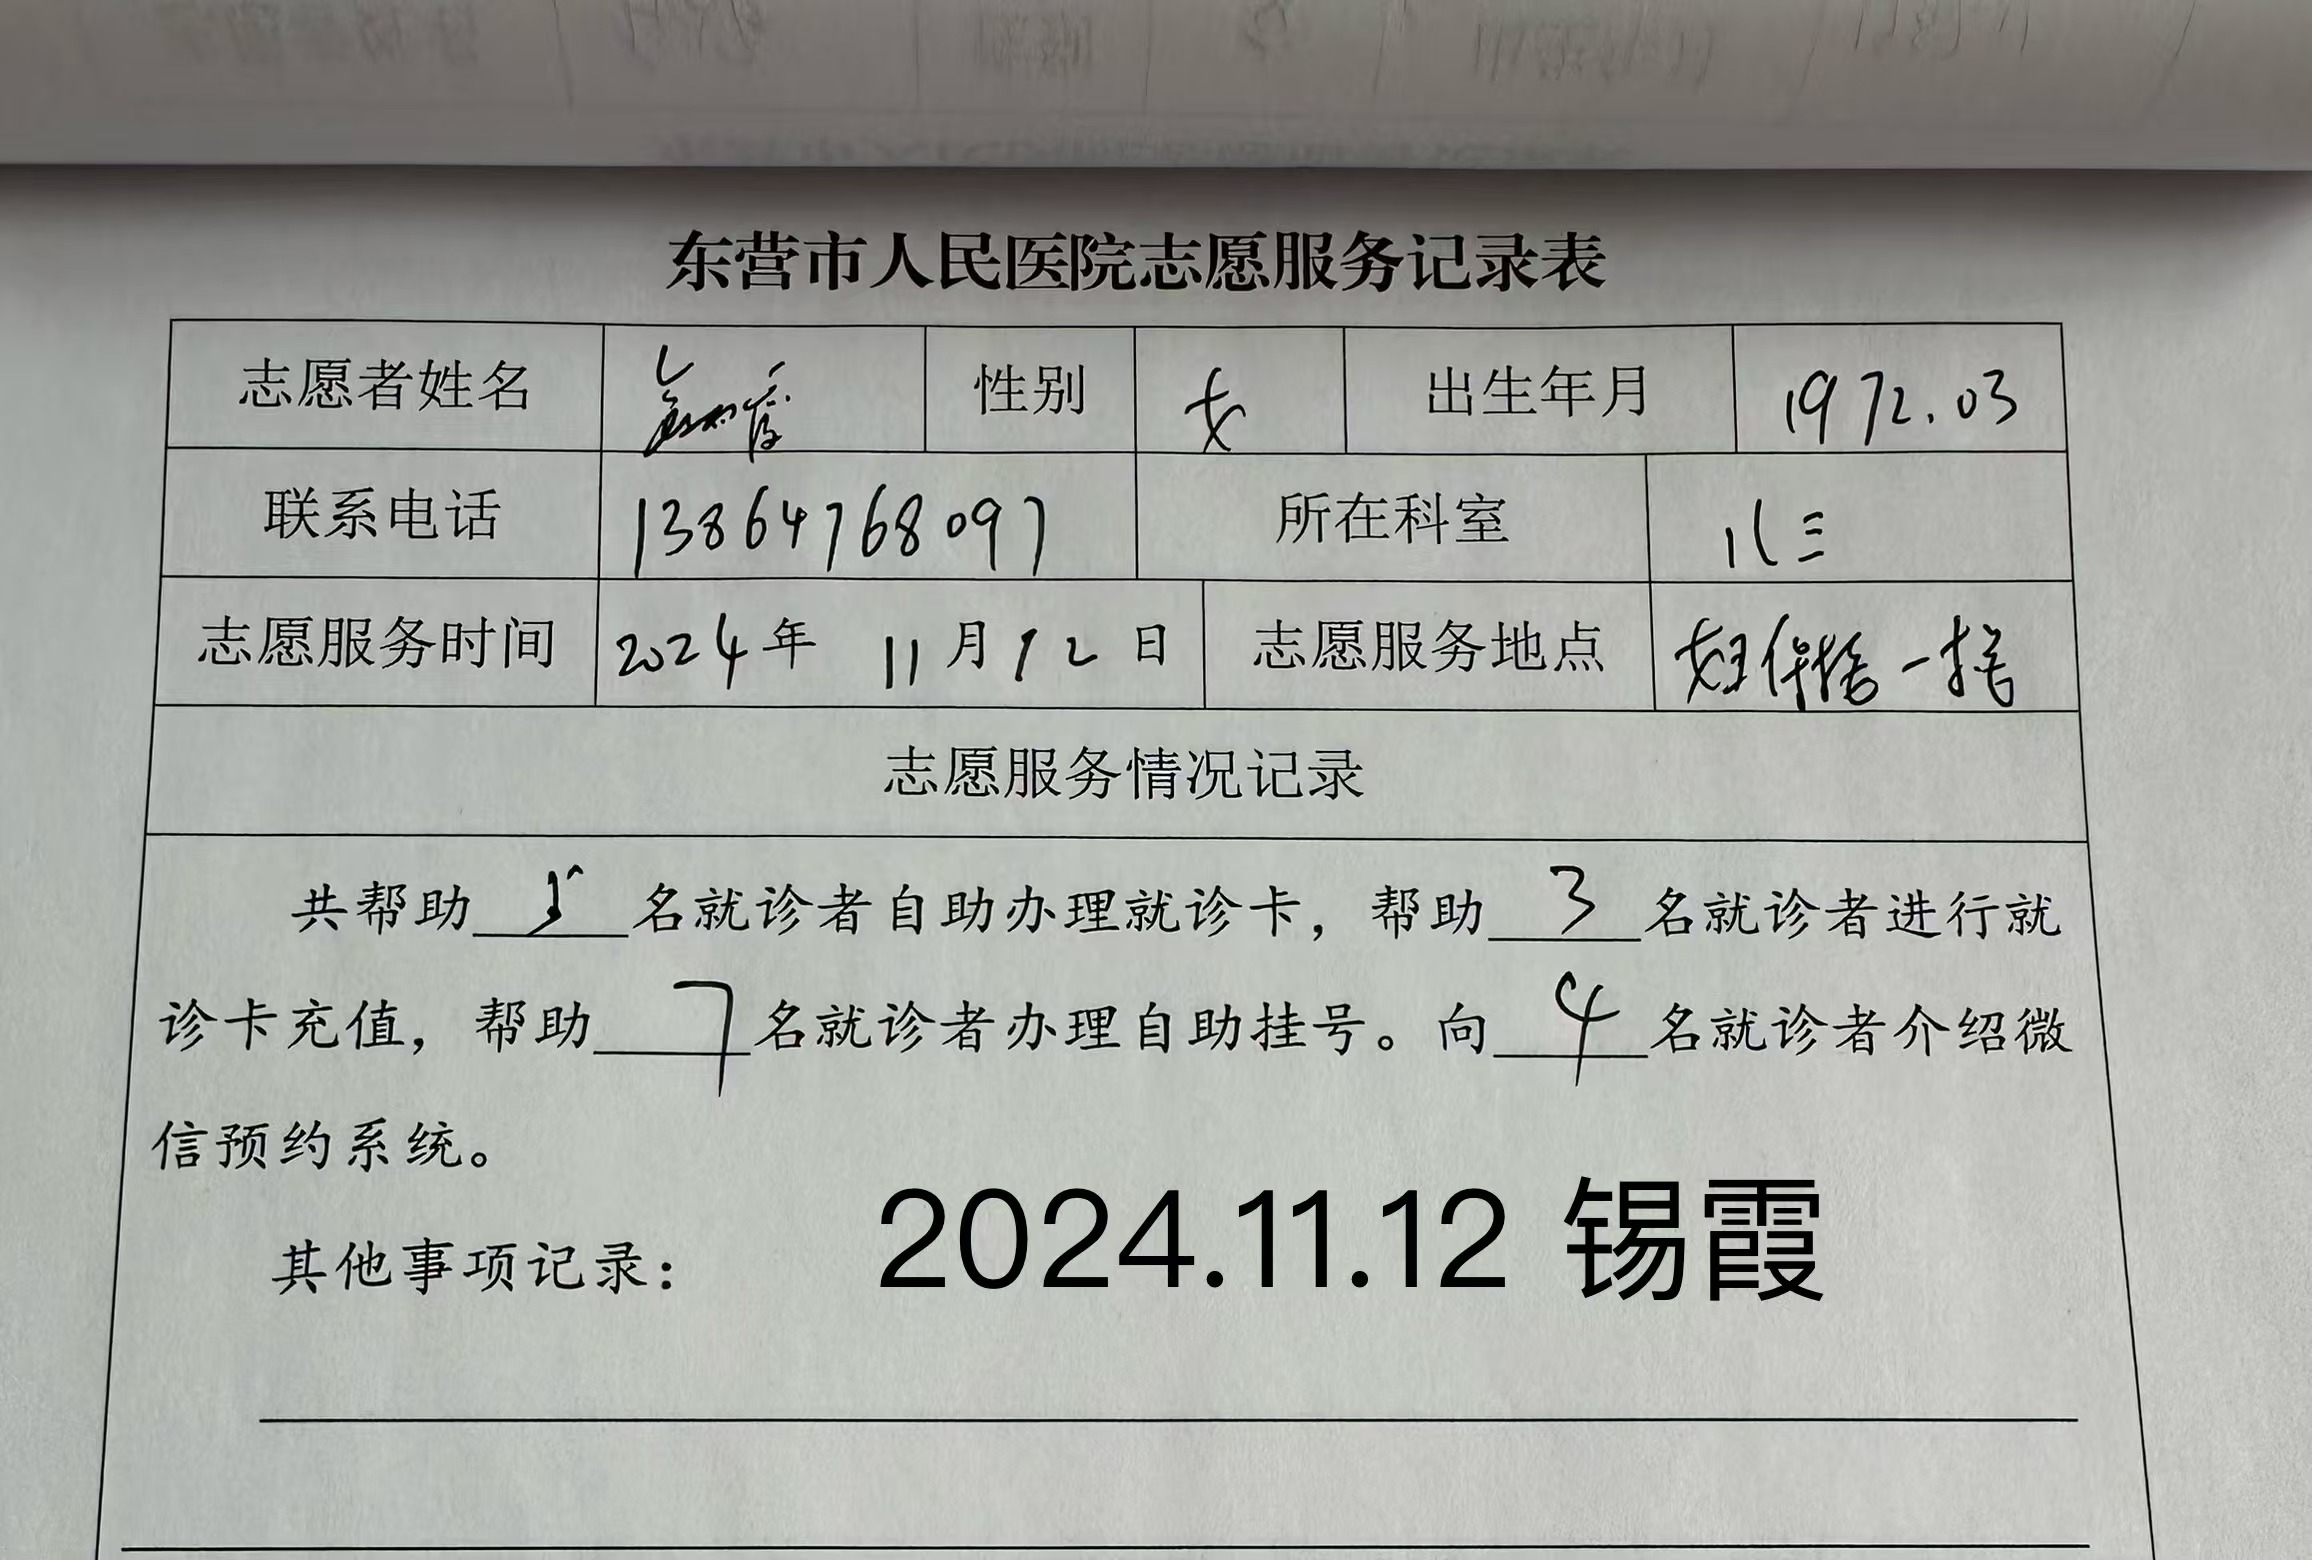 东营市人民医院志愿服务记录表
志愿者姓名 性别 女 出生年月 1972.03
联系电话 13864768097 所在科室 儿三
志愿服务时间 2024年 11月12日 志愿服务地点 妇保楼一楼
志愿服务情况记录
共帮助 5 名就诊者自助办理就诊卡，帮助 3 名就诊者进行就
诊卡充值，帮助 7 名就诊者办理自助挂号。向 4 名就诊者介绍微
信预约系统。
其他事项记录： 2024.11.12 锡霞